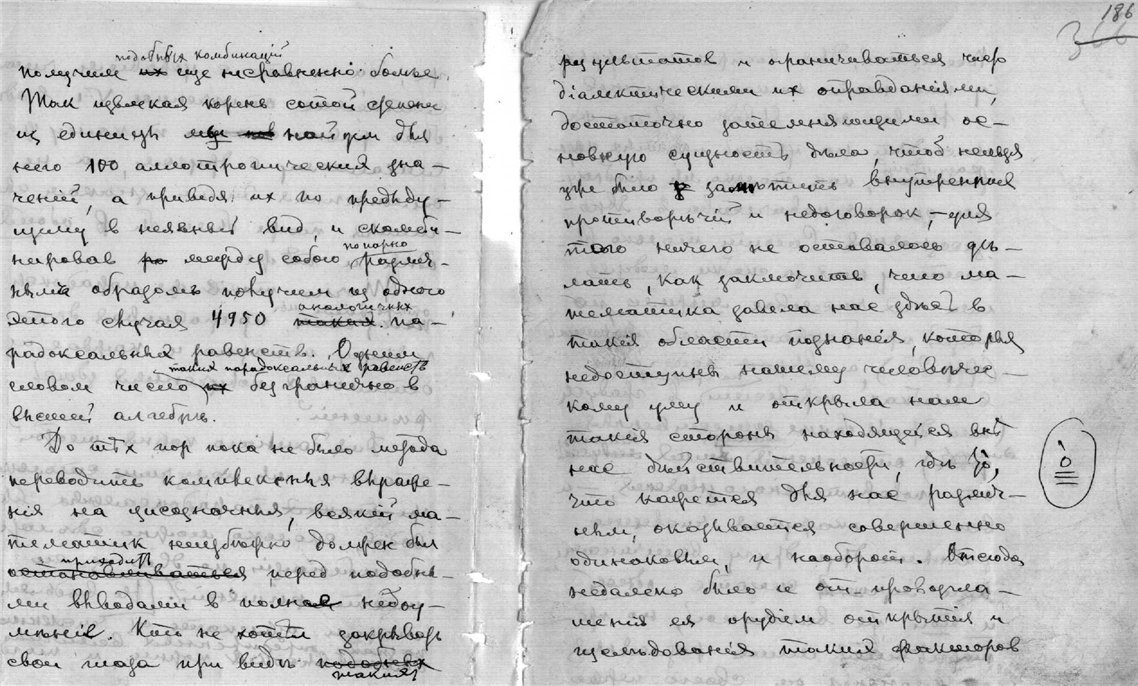 подобных комбинацій
получим еще несравненно больше.
Так извлекая корень сотой степени
из единицы найдем для
него 100 аллотропических зна-
чений, а приведя их по предъиду-
щему в неявный вид и скомби-
попарно
нировав между собою различ-
ным образомъ получим из одного
аналогичных
этого случая 4950 таких па-
радоксальных равенств. Одним
таких парадоксальных равенств
словом число их безгранично в
высшей алгебрѣ.
До тѣх пор пока не было метода
переводить комплексныя выраже-
нія на цисозначныя, всякій ма-
тематик неизбѣжно должен был
приходить
останавливаться перед подобны-
ми выводами в полное недоу-
мѣніе. Кто не хотѣл закрывать
свои глаза при видѣ подобных
таких
186
результатов и ограничиваться чисто
діалектическими их оправданіями,
достаточно затемняющими ос-
новную сущность дѣла, чтоб нельзя
уже было замѣтить внутренних
противорѣчій и недоговорок, – для
того ничего не оставалось дѣ-
лать, как заключить, что ма-
тематика завела нас здѣсь в
такія области познанія, которыя
недоступны нашему человѣчес-
кому уму и открыла нам
такія стороны находящейся внѣ
нас дѣйствительности, гдѣ то,
что кажется для нас различ-
ным, оказывается совершенно
одинаковым, и наоборот. Отсюда
недалеко было и от провозгла-
шенія ея орудіем открытія и
изслѣдованія таких факторов